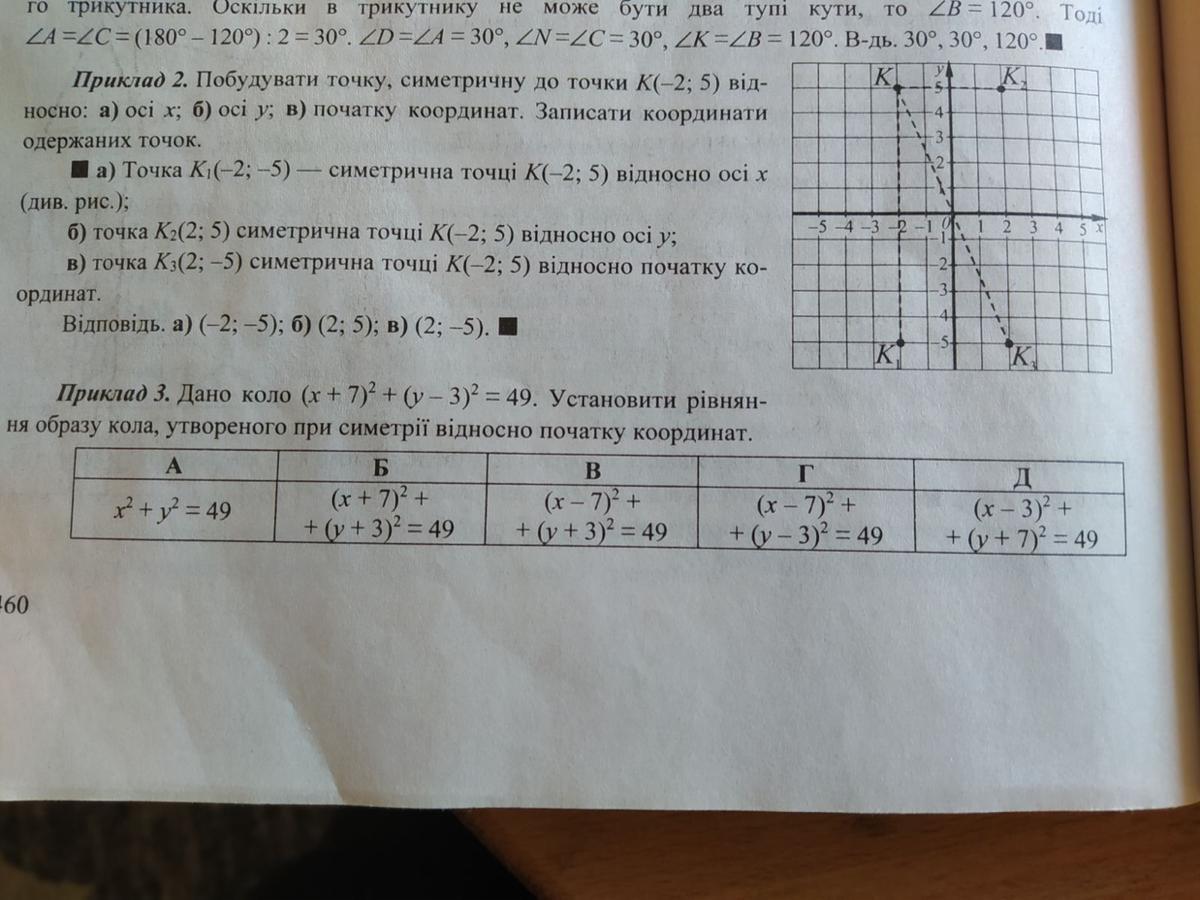 го трикутника. Оскільки в трикутнику не може бути два тупі кути, то ∠B = 120°. Тоді
∠A =∠C = (180° – 120°) : 2 = 30°. ∠D =∠A = 30°, ∠N =∠C = 30°, ∠K =∠B = 120°. В-дь. 30°, 30°, 120°.■
Приклад 2. Побудувати точку, симетричну до точки K(–2; 5) від-
носно: а) осі x; б) осі y; в) початку координат. Записати координати
одержаних точок.
■ а) Точка K₁(–2; –5) — симетрична точці K(–2; 5) відносно осі x
(див. рис.);
б) точка K₂(2; 5) симетрична точці K(–2; 5) відносно осі y;
в) точка K₃(2; –5) симетрична точці K(–2; 5) відносно початку ко-
ординат.
Відповідь. а) (–2; –5); б) (2; 5); в) (2; –5). ■
K y K₂
5
4
3
2
1
–5 –4 –3 –2 –1 0 1 2 3 4 5 x
–1
–2
–3
4
–5
K₁ K₃
Приклад 3. Дано коло (x + 7)² + (y – 3)² = 49. Установити рівнян-
ня образу кола, утвореного при симетрії відносно початку координат.
А Б В Г Д
x² + y² = 49 (x + 7)² + (x – 7)² + (x – 7)² + (x – 3)² +
+ (y + 3)² = 49 + (y + 3)² = 49 + (y – 3)² = 49 + (y + 7)² = 49
460